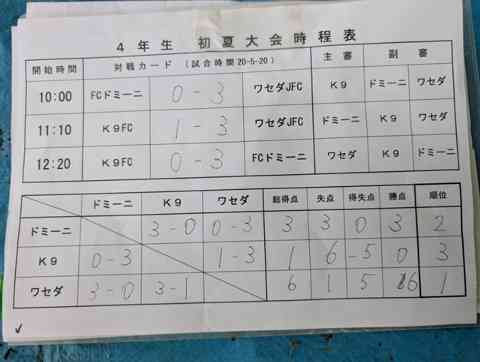 4年生 初夏大会時程表
開始時間 対戦カード (試合時間20-5-20) 主審 副審
10:00 FCドミーニ 0-3 ワセダJFC K9 ドミーニ ワセダ
11:10 K9FC 1-3 ワセダJFC ドミーニ K9 ワセダ
12:20 K9FC 0-3 FCドミーニ ワセダ K9 ドミーニ
ドミーニ K9 ワセダ 総得点 失点 得失点 勝点 順位
ドミーニ 3-0 0-3 3 3 0 3 2
K9 0-3 1-3 1 6 -5 0 3
ワセダ 3-0 3-1 6 1 5 6 1